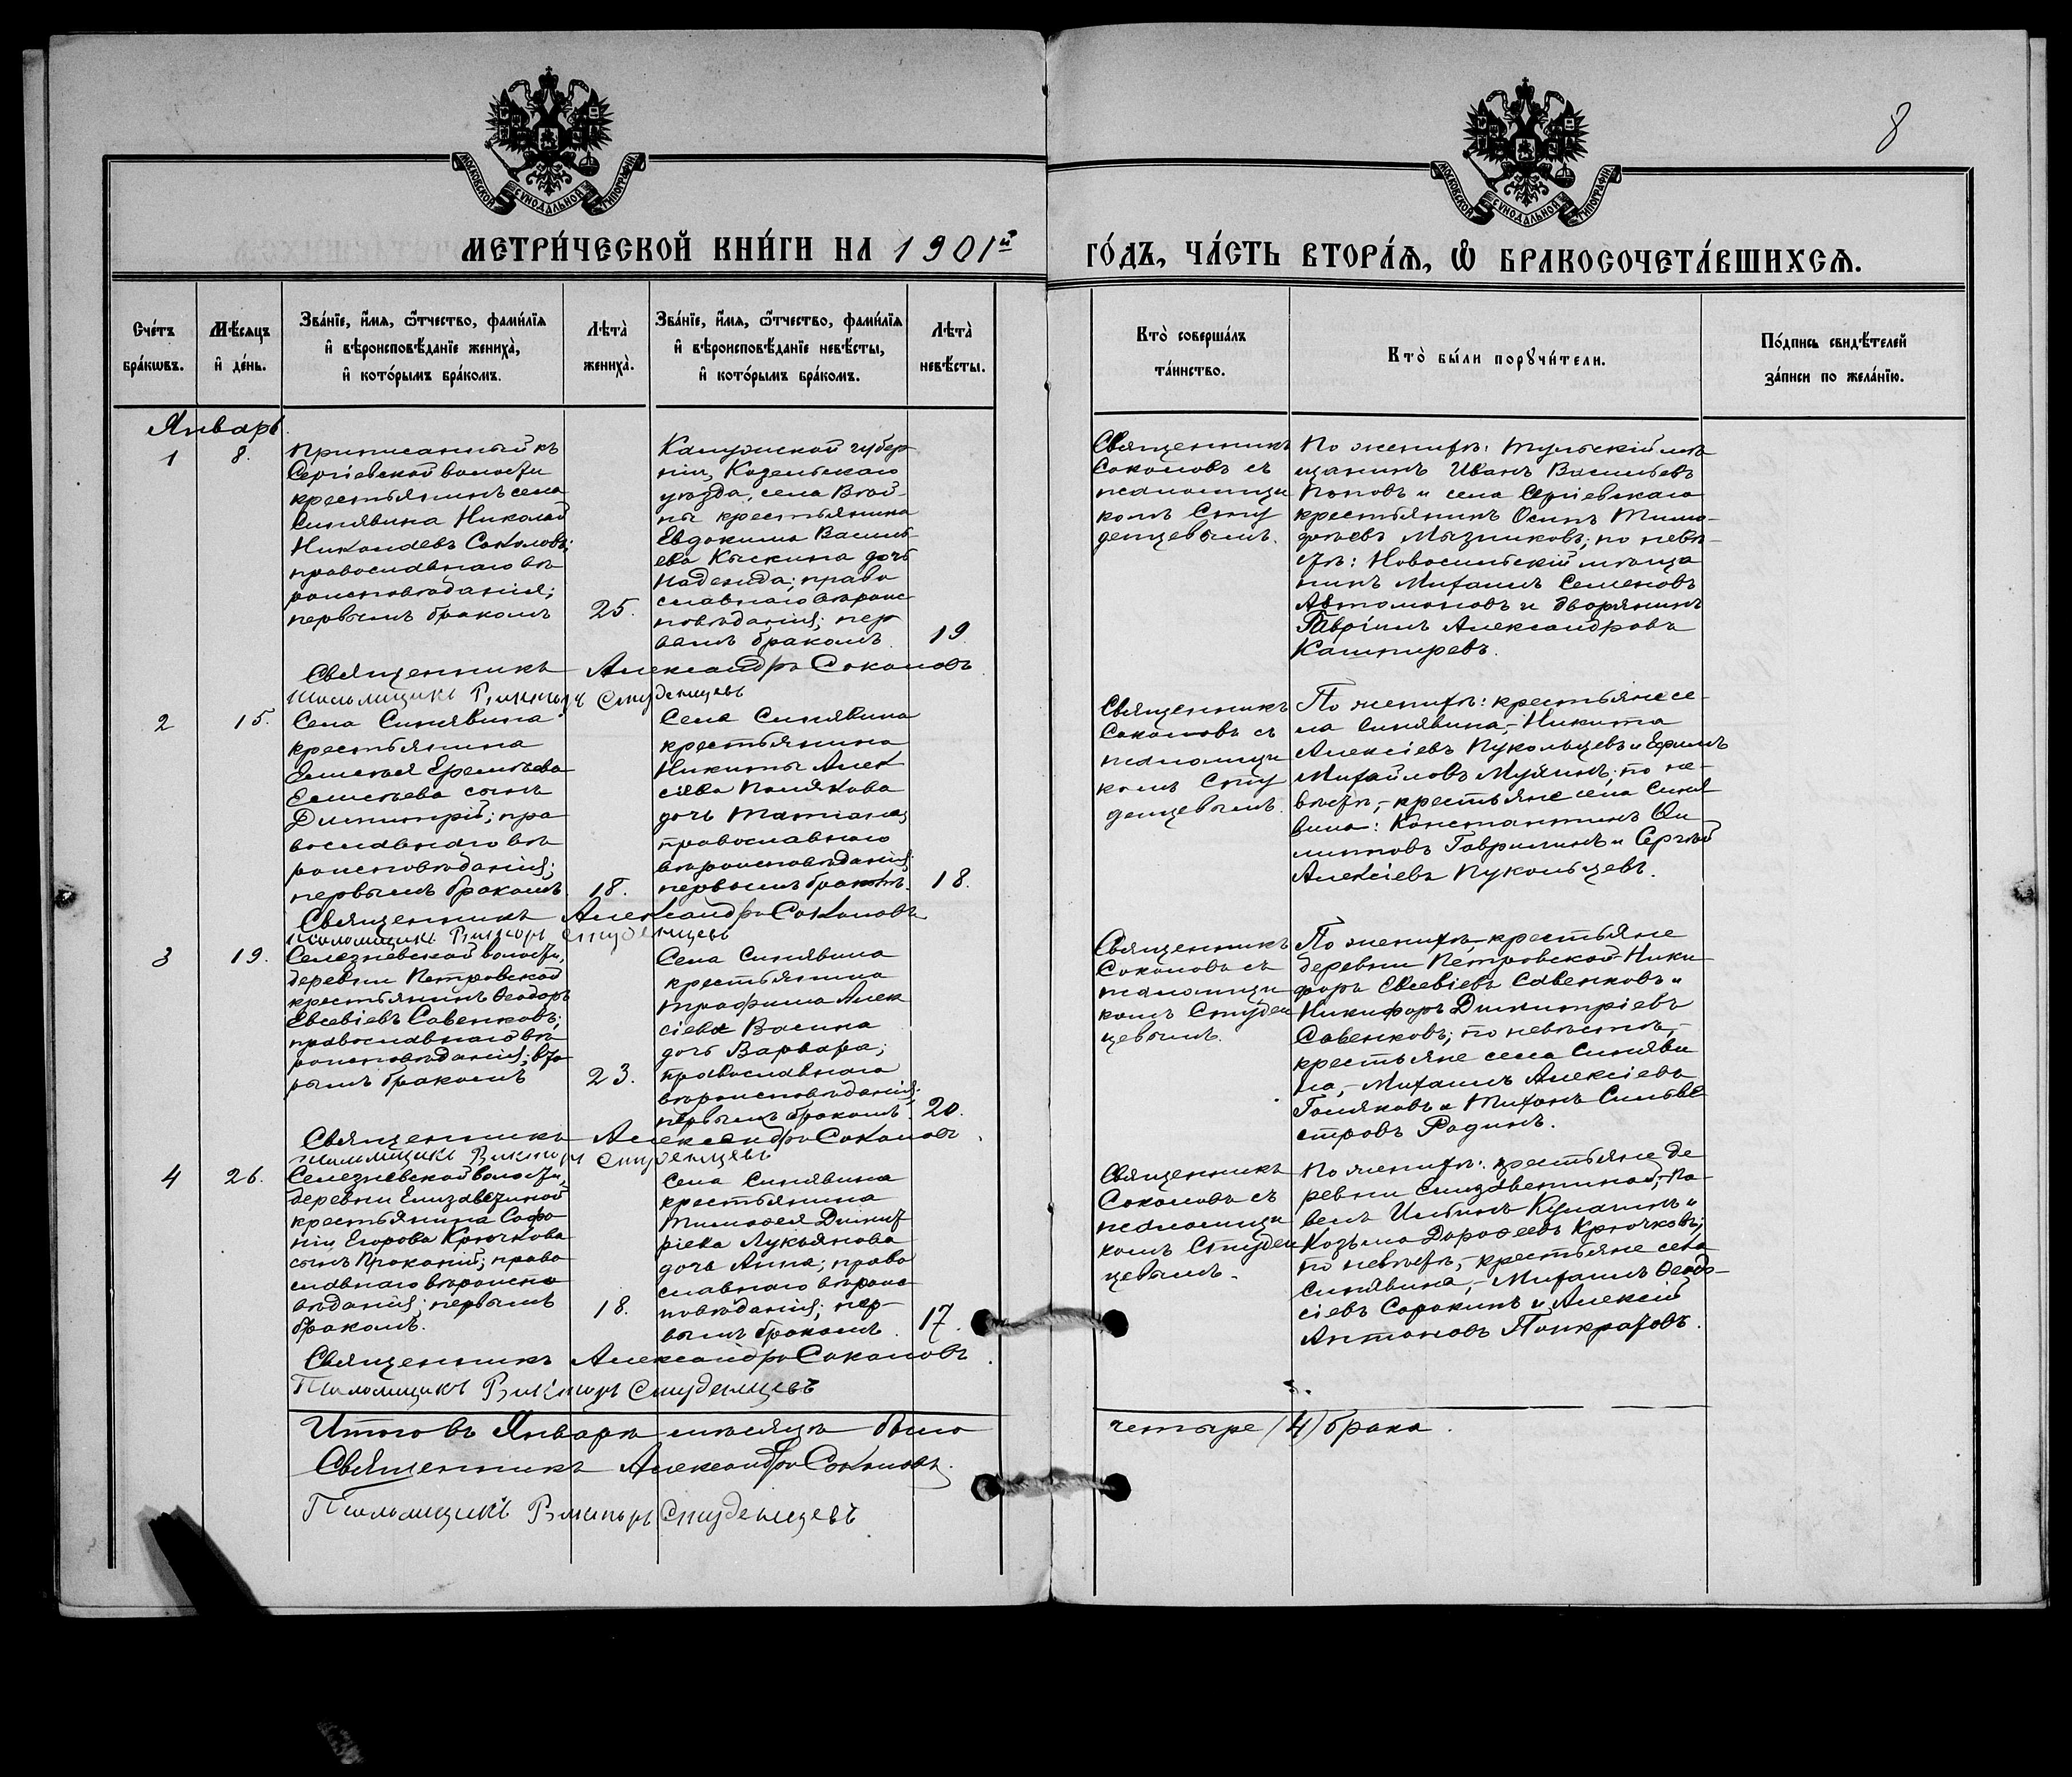 8
МОСКОВСКОЙ СѴНОДАЛЬНОЙ ТИПОГРАФІИ
МОСКОВСКОЙ СѴНОДАЛЬНОЙ ТИПОГРАФІИ
МЕТРИ́ЧЕСКОЙ КНИ́ГИ НА 1901й
ГО́ДЪ, ЧА́СТЬ ВТОРА́Я, Ѽ БРАКОСОЧЕТА́ВШИХСЯ.
Сче́тъ
бра́кωвъ.
Мѣ́сяцъ
и҆ де́нь.
Зва́нїе, и҆́мя, ѻ҆́тчество, фами́лїя
и҆ вѣроисповѣ́данїе жениха̀,
и҆ кото́рымъ бра́комъ.
Лѣта̀
жениха̀.
Зва́нїе, и҆́мя, ѻ҆́тчество, фами́лїя
и҆ вѣроисповѣ́данїе невѣ́сты,
и҆ кото́рымъ бра́комъ.
Лѣта̀
невѣ́сты.
Кто̀ соверша́лъ
та́инство.
Кто̀ бы́ли порꙋчи́тели.
По́дпись свидѣ́телей
за́писи по жела́нїю.
Январь.
1
8.
Приписанный къ
Сергіевской волости
крестьянинъ села
Синявина Николай
Николаевъ Соколовъ;
православнаго вѣ
роисповѣданія;
первымъ бракомъ
25.
Калужской губер
ніи, Козельскаго
уѣзда, села
крестьянина
Евдокима Василь
ева Кыскина дочь
Надежда; право
славнаго вѣроис
повѣданія; пер
вымъ бракомъ
19
Священникъ
Соколовъ съ
псаломщи
комъ Сту
денцевымъ.
По женихѣ: тульскій мѣ
щанинъ Иванъ Васильевъ
Поповъ и села Сергіевскаго
крестьянинъ Осипъ Тимо-
феевъ Мызниковъ; по невѣ-
стѣ: Новосильскій мѣща
нинъ Михаилъ Семеновъ
Автомоновъ и дворянинъ
Гавріилъ Александровъ
Каштыревъ.
Священникъ Александръ Соколовъ
Псаломщикъ Викторъ Студенцевъ
2
15.
Села Синявина
крестьянина
Елисея Еремѣева
Елисѣева сынъ
Димитрій; пра
вославнаго вѣ
роисповѣданія;
первымъ бракомъ
18.
Села Синявина
крестьянина
Никиты Алек
сіева Полякова
дочь Татіана;
православнаго
вѣроисповѣданія;
первымъ бракомъ.
18.
Священникъ
Соколовъ съ
псаломщи
комъ Сту
денцевымъ.
По женихѣ: крестьяне се-
ла Синявина, - Никита
Алексіевъ Пукольцевъ и Ефимъ
Михайловъ Мулинъ; по не-
вѣстѣ, - крестьяне села Синя
вина: Константинъ Фи
липповъ Гаврилинъ и Сергѣй
Алексіевъ Пукольцевъ.
Священникъ Александръ Соколовъ
Псаломщикъ Викторъ Студенцевъ
3
19.
Селезневской волости,
деревни Петровской
крестьянинъ Ѳеодоръ
Евсевіевъ Савенковъ;
православнаго вѣ
роисповѣданія; вто
рымъ бракомъ
23.
Села Синявина
крестьянина
Трофима Алек
сіева Васина
дочь Варвара;
православнаго
вѣроисповѣданія;
первымъ бракомъ
20.
Священникъ
Соколовъ съ
псаломщи
комъ Студен
цевымъ.
По женихѣ, - крестьяне
деревни Петровской Ники
форъ Евсевіевъ Савенковъ и
Никифоръ Димитріевъ
Савенковъ; по невѣстѣ, -
крестьяне села Синяви
на, - Михаилъ Алексіевъ
Поляковъ и Тихонъ Сильве
стровъ Родинъ.
Священникъ Александръ Соколовъ.
Псаломщикъ Викторъ Студенцевъ
4
26.
Селезневской волости,
деревни Елизаветиной
крестьянина Софо
нія Егорова Крючкова
сынъ Прокопій; право
славнаго вѣроиспо
вѣданія; первымъ
бракомъ.
18.
Села Синявина
крестьянина
Тимофея Димит
ріева Лукьянова
дочь Анна; право
славнаго вѣроис
повѣданія; пер-
вымъ бракомъ.
17.
Священникъ
Соколовъ съ
псаломщи
комъ Студен
цевымъ.
По женихѣ: крестьяне де
ревни Елизаветиной, - Па-
велъ Ильинъ и
Козьма Дорофеевъ Крючковъ;
по невѣстѣ, - крестьяне села
Синявина, - Михаилъ Ѳеодо-
сіевъ Сорокинъ и Алексій
Антоновъ Понкратовъ.
Священникъ Александръ Соколовъ.
Псаломщикъ Викторъ Студенцевъ
Итого въ Январѣ мѣсяцѣ было
четыре /4/ брака.
Священникъ Александръ Соколовъ.
Псаломщикъ Викторъ Студенцевъ